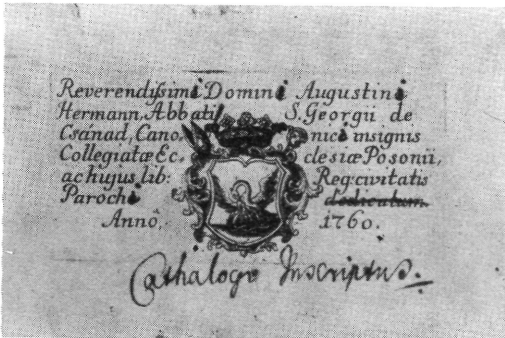 Reverendissimi Domini Augustini
Hermann, Abbatis S. Georgii de
Csanad, Cano, nici insignis
Collegiatæ Ec, clesiæ Posonii,
ac hujus lib: Reg: civitatis
Parochi dedicatum
Annô, 1760.
Cathalogo Inscriptus.